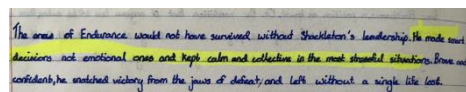 The crew of Endurance would not have survived without Shackleton's leadership. He made smart
decisions not emotional ones and kept calm and collective in the most stressful situations. Brave and
confident, he snatched victory from the jaws of defeat, and left without a single life lost.